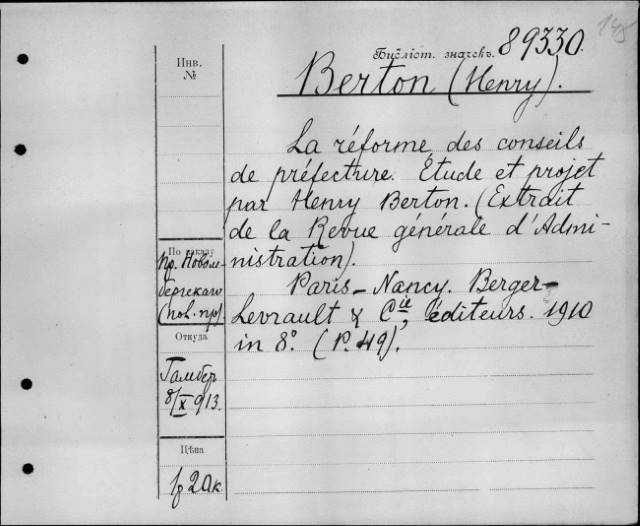 148
Библіот. значекъ. 89330.
Инв.
№
Berton (Henry).
La réforme des conseils
de préfecture. Etude et projet
par Henry Berton. (Extrait
de la Revue générale d'Admi-
nistration).
Paris - Nancy. Berger-
Levrault & Cie, éditeurs. 1910
in 8°. (P. 49).
По заказу
пр. Новом-
бергскаго
(нов. пр)
Откуда
Гамбер
8/X 913.
Цѣна
1р 20 к.